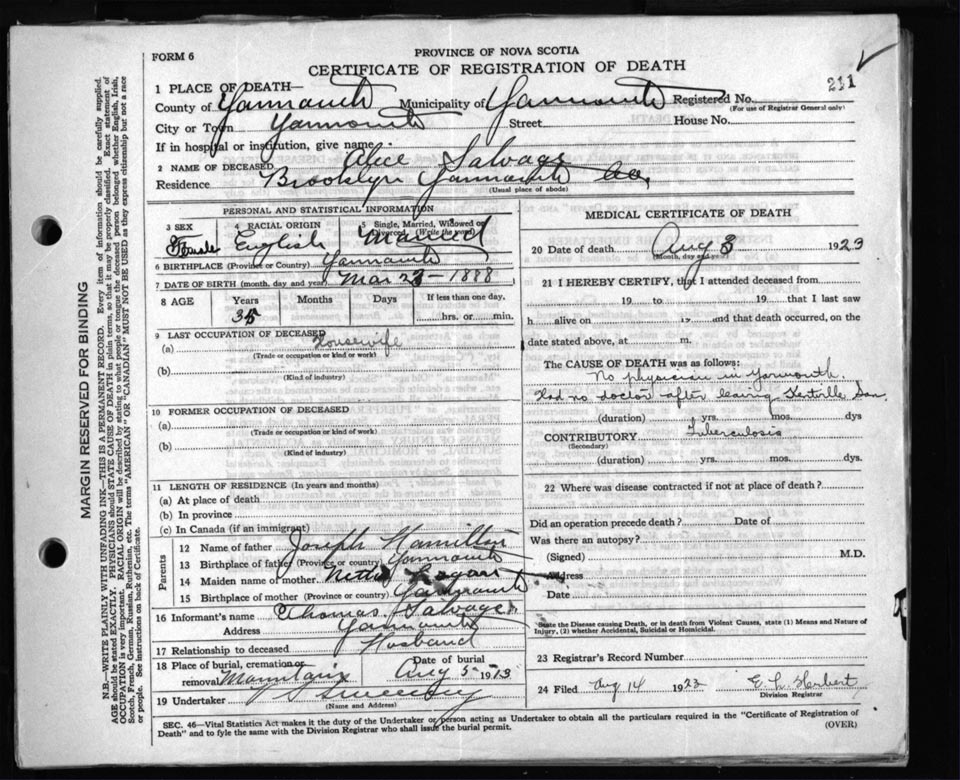 PROVINCE OF NOVA SCOTIA
FORM 6
CERTIFICATE OF REGISTRATION OF DEATH
211
1 PLACE OF DEATH—
County of Yarmouth Municipality of Yarmouth Registered No.
(For use of Registrar General only)
City or Town Yarmouth Street House No.
If in hospital or institution, give name
2 NAME OF DECEASED Alice Salvage
Residence Brooklyn Yarmouth Co.
(Usual place of abode)
PERSONAL AND STATISTICAL INFORMATION
3 SEX 4 RACIAL ORIGIN 5 Single, Married, Widowed or Divorced (Write the word)
Female English Married
6 BIRTHPLACE (Province or Country) Yarmouth
7 DATE OF BIRTH (month, day and year) Mar 23 - 1888
8 AGE Years Months Days If less than one day,
35 hrs. or min.
9 LAST OCCUPATION OF DECEASED
(a) Housewife
(Trade or occupation or kind or work)
(b)
(Kind of industry)
10 FORMER OCCUPATION OF DECEASED
(a)
(Trade or occupation or kind of work)
(b)
(Kind of Industry)
11 LENGTH OF RESIDENCE (In years and months)
(a) At place of death
(b) In province
(c) In Canada (if an immigrant)
Parents
12 Name of father Joseph Hamilton
13 Birthplace of father (Province or country) Yarmouth
14 Maiden name of mother
15 Birthplace of mother (Province or country) Yarmouth
16 Informant's name Thomas Salvage
Address Yarmouth
17 Relationship to deceased Husband
18 Place of burial, cremation or removal Mountain Date of burial Aug 5 1923
19 Undertaker Sweeney
(Name and Address)
MEDICAL CERTIFICATE OF DEATH
20 Date of death Aug 3 1923
(Month, day and year)
21 I HEREBY CERTIFY, that I attended deceased from
19 to 19 that I last saw
h alive on 19 and that death occurred, on
date stated above, at m.
The CAUSE OF DEATH was as follows:
No physician in Yarmouth.
Had no doctor after leaving Kentville San.
(duration) yrs. mos. dys
CONTRIBUTORY Tuberculosis
(Secondary)
(duration) yrs. mos. dys.
22 Where was disease contracted if not at place of death?
Did an operation precede death? Date of
Was there an autopsy?
(Signed) M.D.
Address
Date
State the Disease causing Death, or in death from Violent Causes, state (1) Means and Nature of
Injury, (2) whether Accidental, Suicidal or Homicidal.
23 Registrar's Record Number
24 Filed Aug 14 1923 E. L. Herbert
Division Registrar
SEC. 46—Vital Statistics Act makes it the duty of the Undertaker or person acting as Undertaker to obtain all the particulars required in the "Certificate of Registration of
Death" and to fyle the same with the Division Registrar who shall issue the burial permit.
(OVER)
MARGIN RESERVED FOR BINDING
N.B.—WRITE PLAINLY WITH UNFADING INK—THIS IS A PERMANENT RECORD. Every item of information should be carefully supplied.
AGE should be stated EXACTLY. PHYSICIANS should STATE CAUSE OF DEATH in plain terms, so that it may be properly classified. Exact statement of
OCCUPATION is very important. RACIAL ORIGIN will be described by stating to what people or tongue the deceased person belonged, whether English, Irish,
Scotch, French, German, Russian, Ruthenian, etc. The terms "AMERICAN" OR "CANADIAN" MUST NOT BE USED as they express citizenship but not a race
or people. See instructions on back of Certificate.